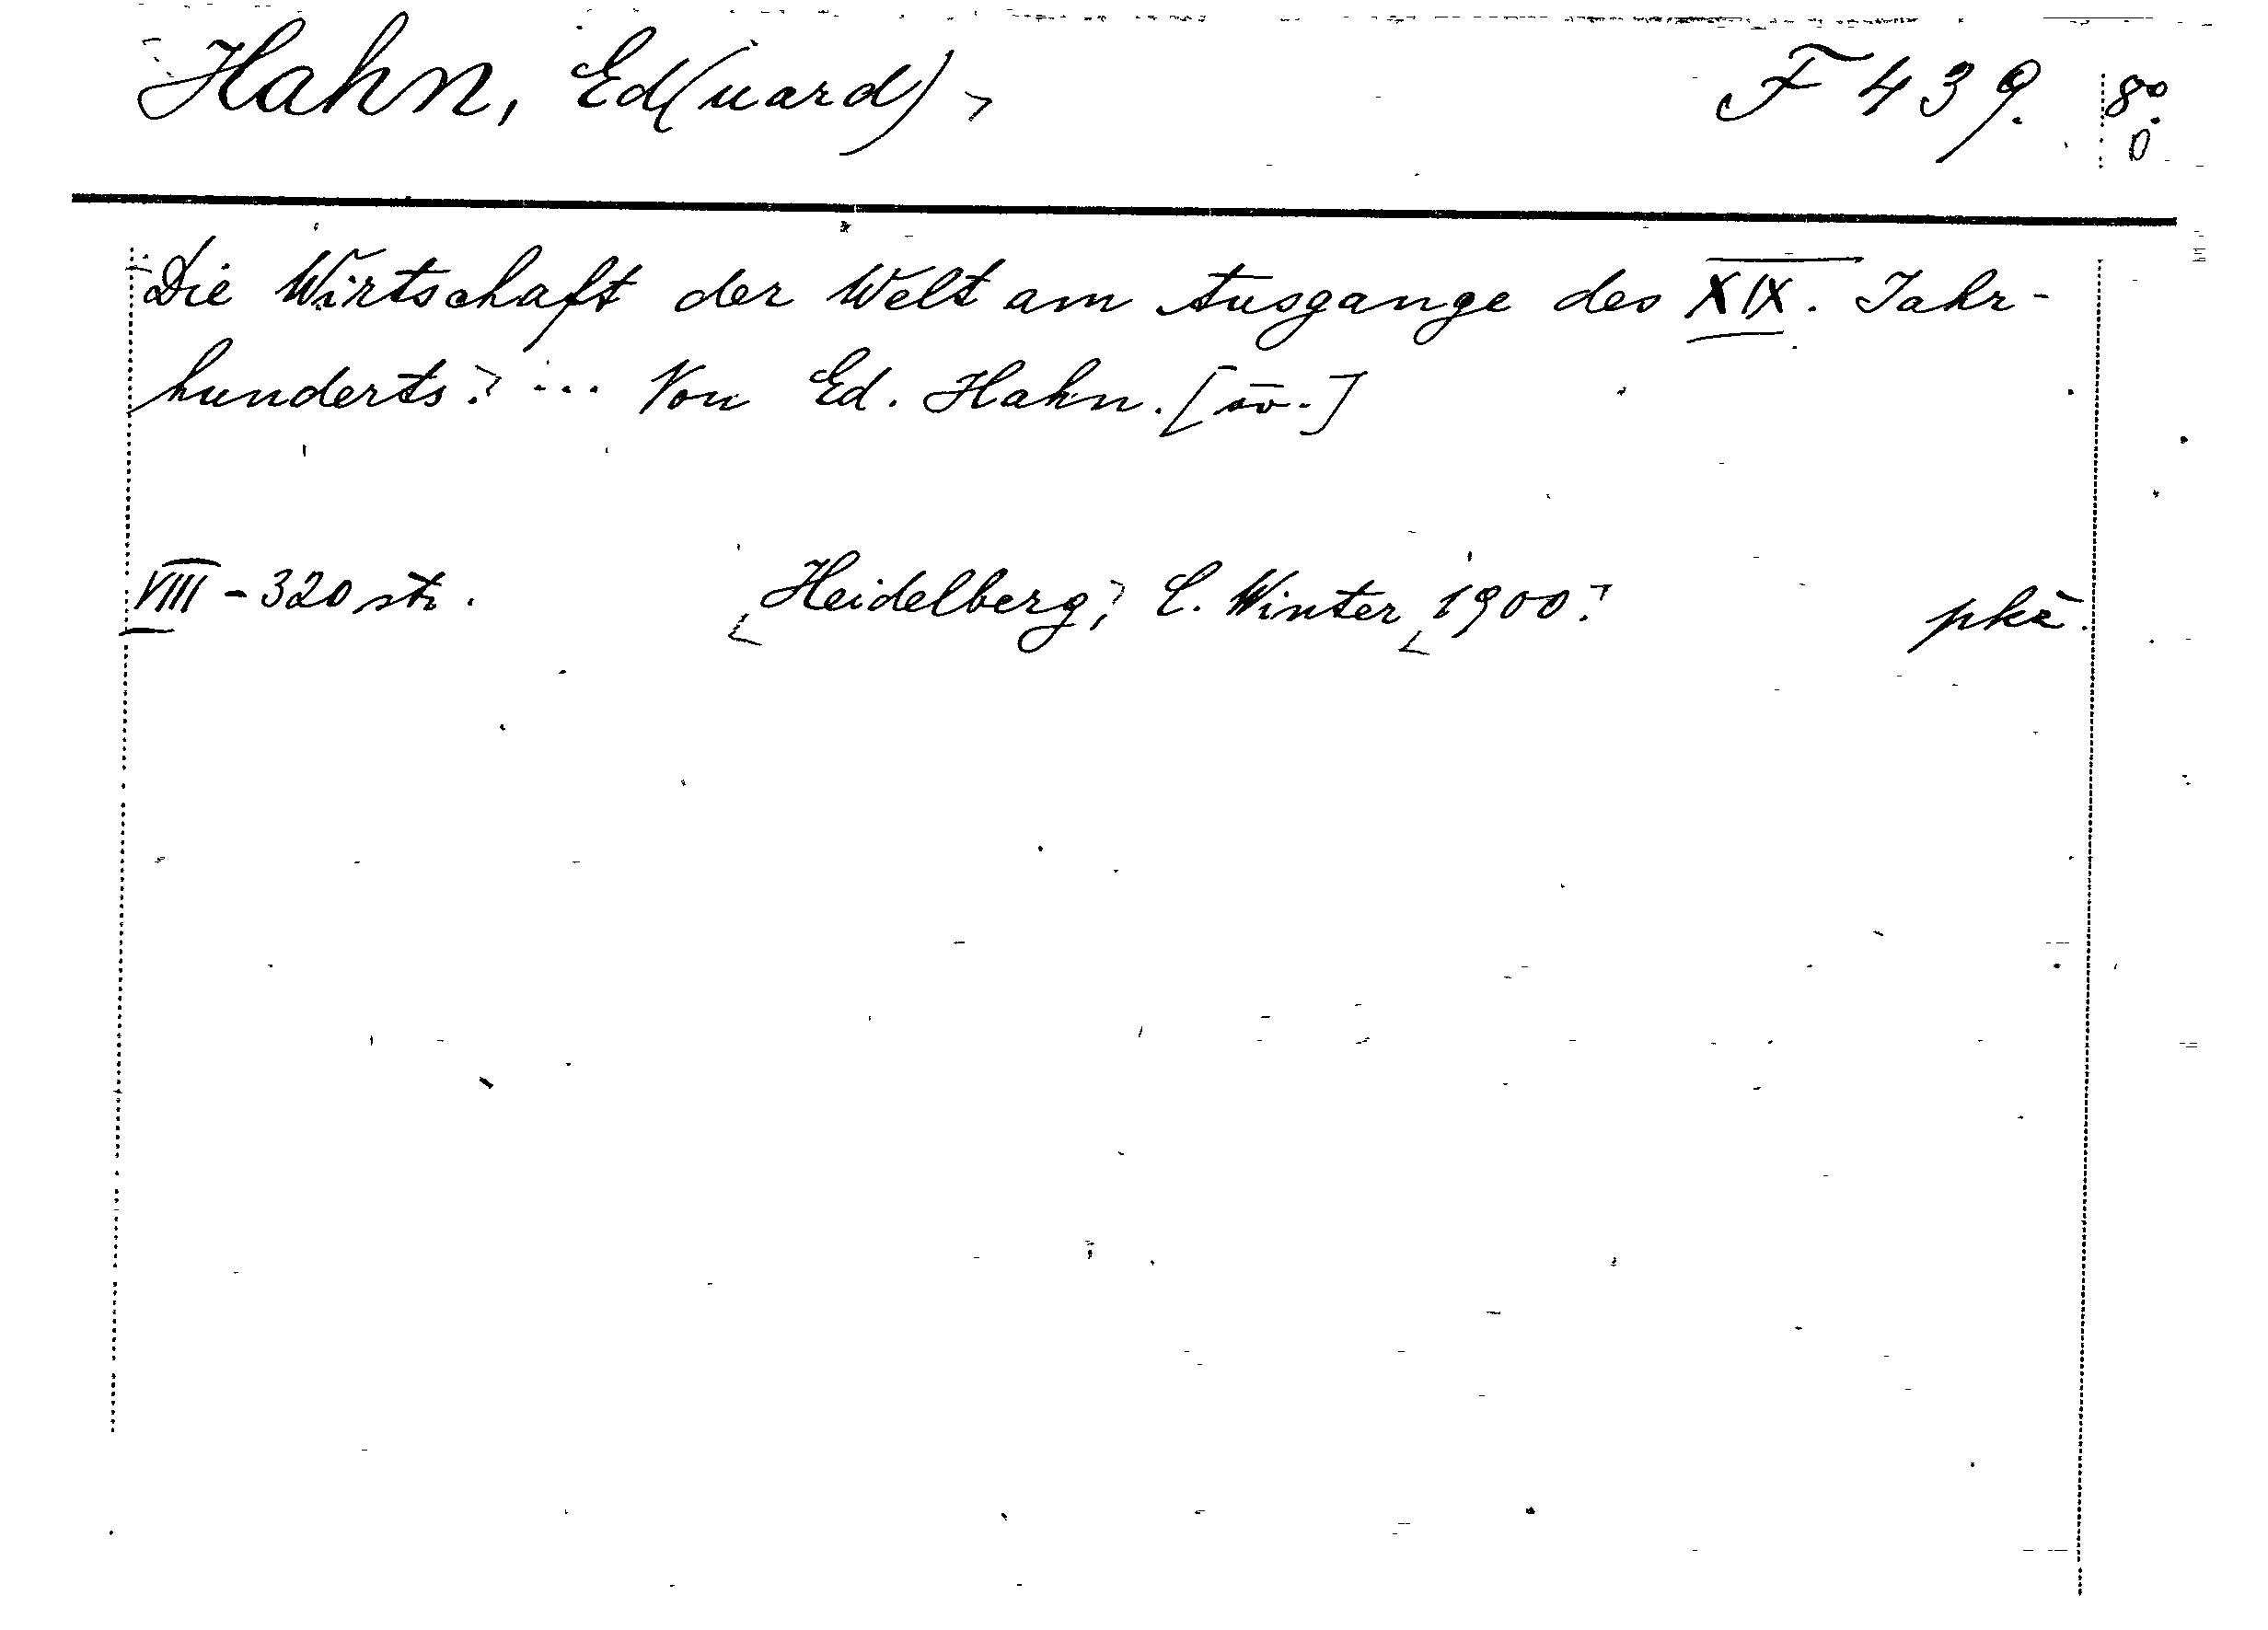 Hahn, Ed(uard), F 439. 8°.
0
Die Wirtschaft der Welt am Ausgange des XIX. Jahr-
hunderts. ... Von Ed. Hahn.
VIII - 320 str. Heidelberg, C. Winter 1900. pkč.